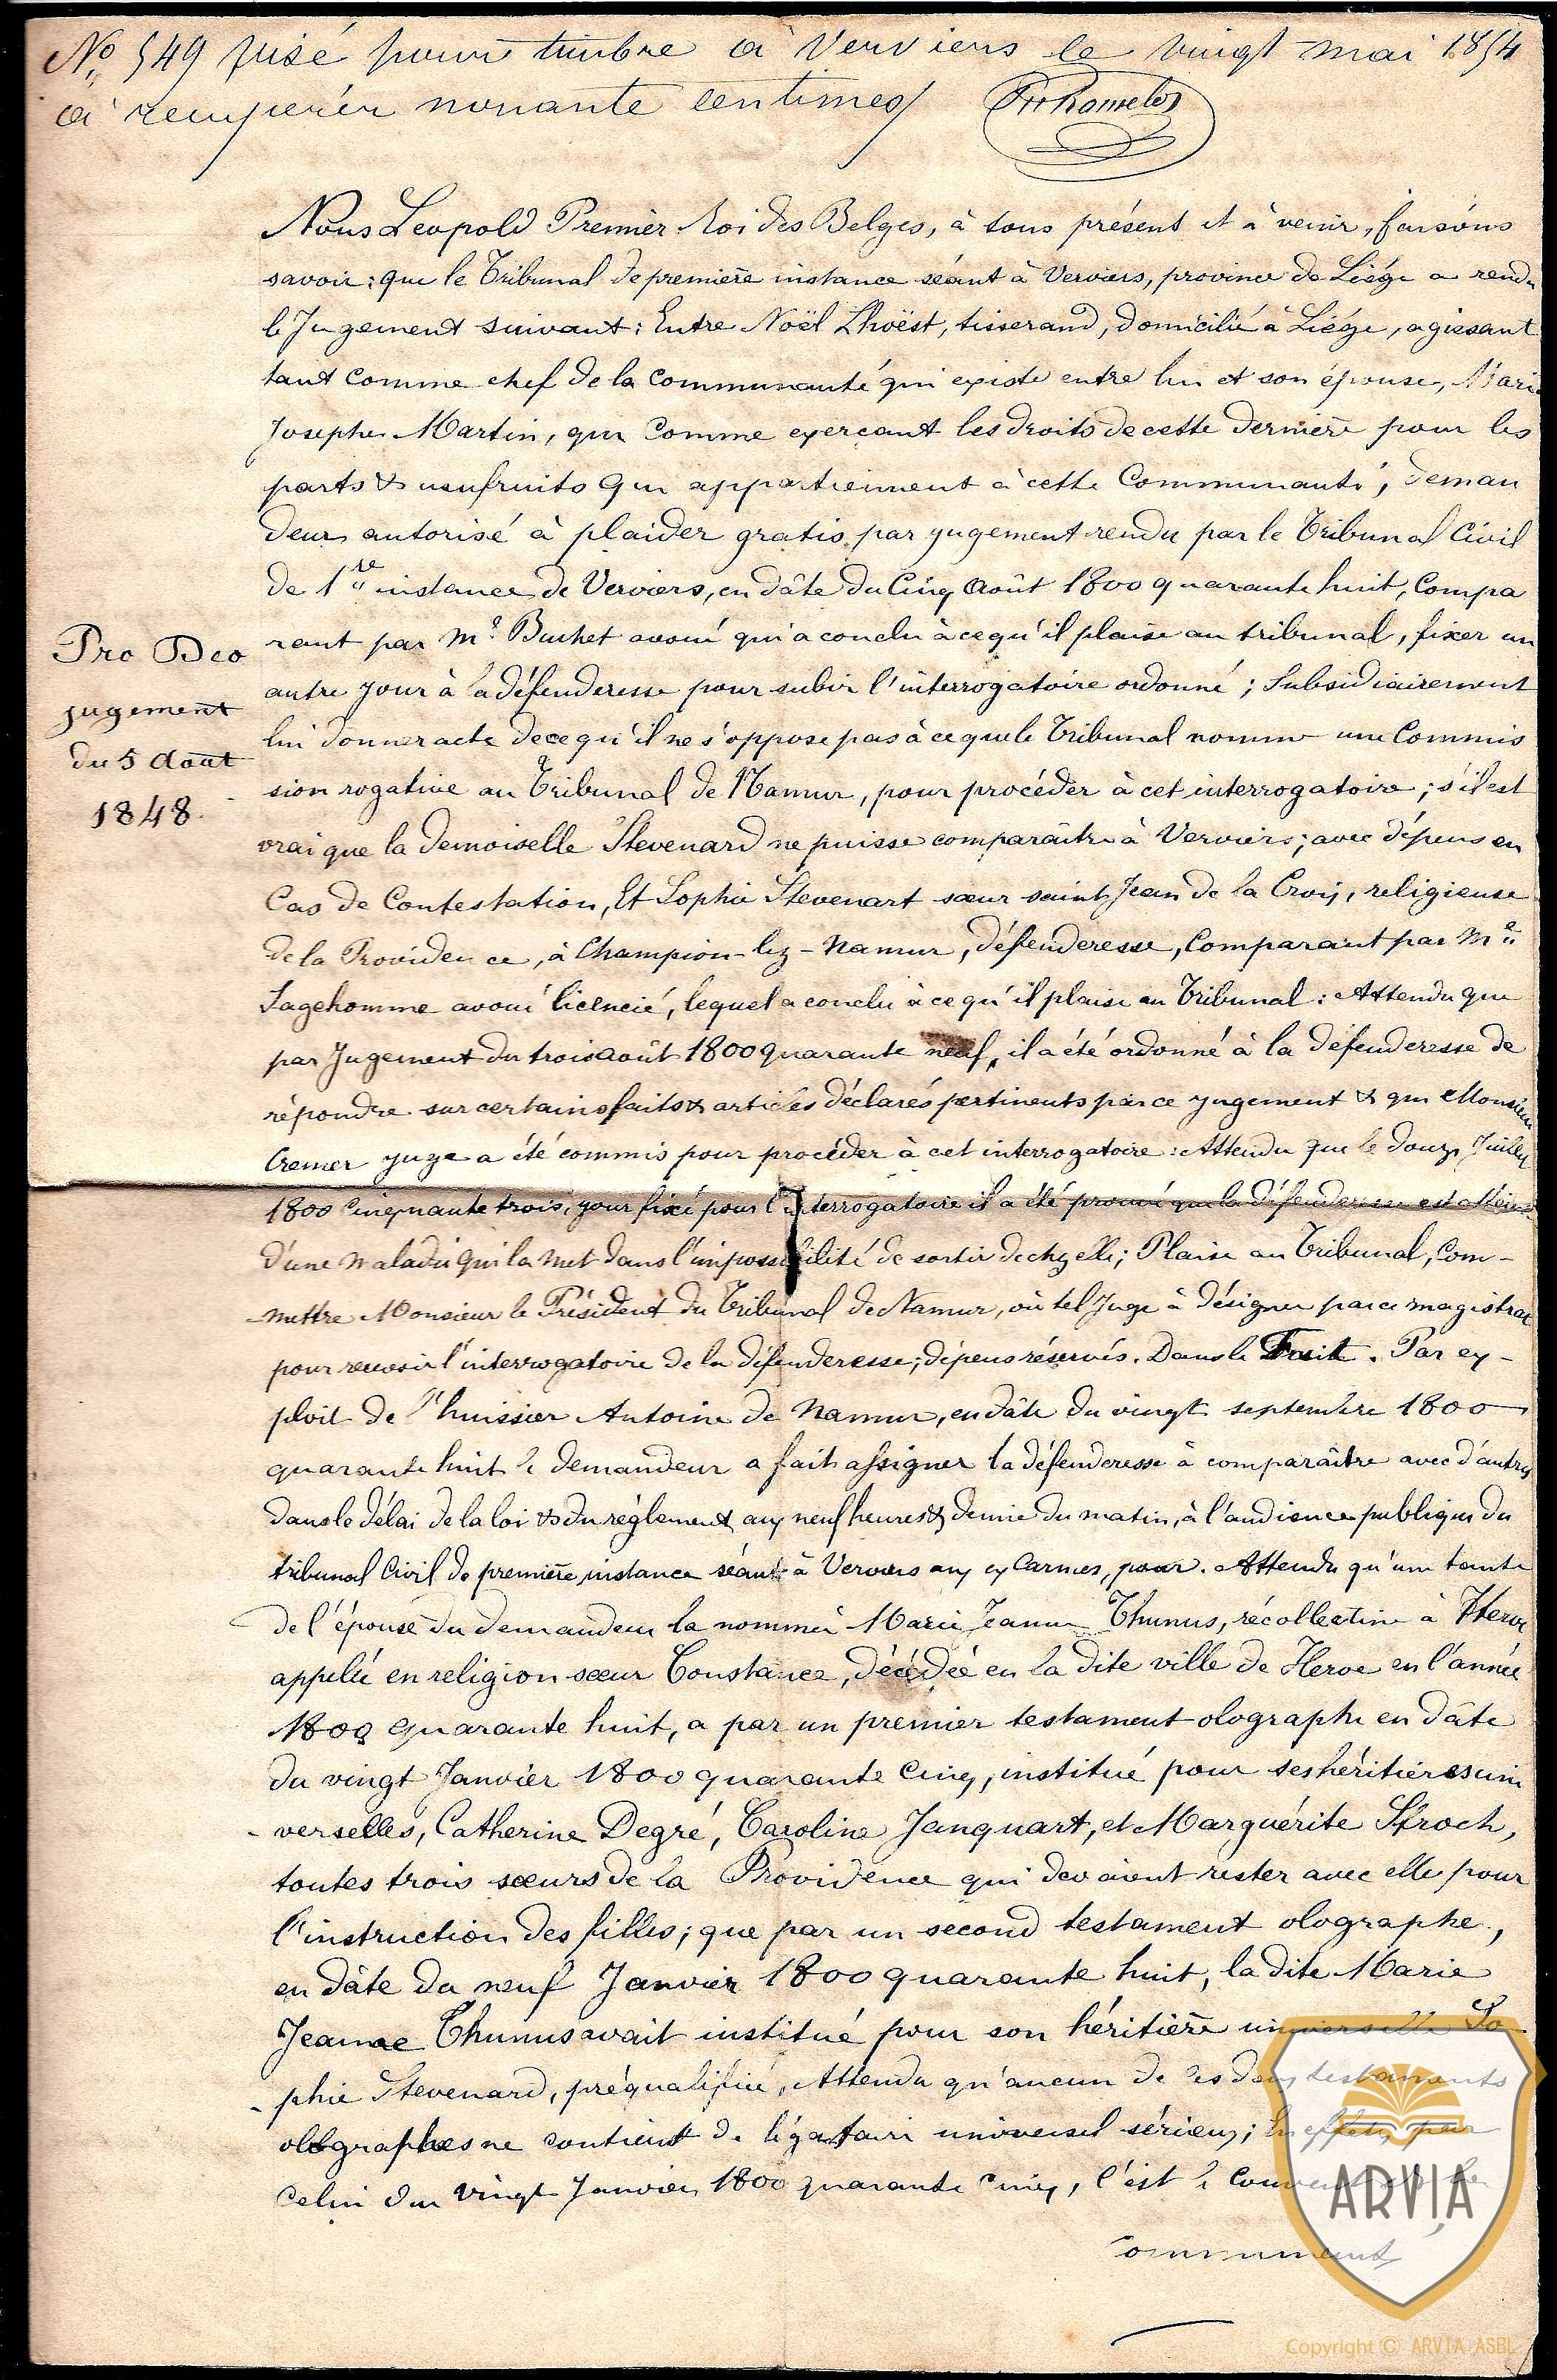 No 549 Visé pour timbre à Verviers le vingt mai 1854
à recupérér nonante centimes
Nous Leopold Premièr Roi des Belges, à tous présens et à venir, faisons
savoir : que le Tribunal de première instance séant à Verviers, province de Liége a rendu
le Jugement suivant : Entre Noël Lhoëst, tisserand, domicilié à Liége, agissant
tant comme chef de la Communauté qui existe entre lui et son épouse, Marie
Josephe Martin, que Comme exerçant les droits de cette dernière pour les
parts & usufruits qui appartiennent à cette Communauté, deman
deur autorisé à plaider gratis par jugement rendu par le Tribunal Civil
de 1re instance de Verviers, en dâte du Cinq Août 1800 quarante huit, Compa
rant par Me Buchet avoué qui a conclu à ce qu'il plaise au tribunal, fixer un
autre jour à la défenderesse pour subir l'interrogatoire ordonné ; Subsidiairement
lui donner acte de ce qu'il ne s'oppose pas à ce que le Tribunal nomme une Commis
sion rogative au Tribunal de Namur, pour procéder à cet interrogatoire ; s'il est
vrai que la demoiselle Stevenard ne puisse comparaître à Verviers ; avec dépens en
Cas de Contestation, Et Sophie Stevenart sœur saint Jean de la Croix, religieuse
de la Providence, à Champion-lez-Namur, défenderesse, Comparant par Me
Sagehomme avoué licencié, lequel a conclu à ce qu'il plaise au Tribunal : Attendu que
par Jugement du trois août 1800 quarante neuf, il a été ordonné à la défenderesse de
répondre sur certains faits & articles déclarés pertinents par ce jugement & que Monsieur
Cremer juge a été commis pour procéder à cet interrogatoire : Attendu que le douze Juillet
1800 Cinquante trois, jour fixé pour l'interrogatoire il a été prouvé que la défenderesse est atteinte
d'une maladie qui la met dans l'impossibilité de sortir de chez elle ; Plaise au Tribunal, Com-
-mettre Monsieur le Président du Tribunal de Namur, où tel Juge à désigner par ce magistrat
pour recevoir l'interrogatoire de la défenderesse ; dépens réservés. Dans le Fait. Par ex-
ploit de l'huissier Antoine de Namur, en dâte du vingt septembre 1800
quarante huit le demandeur a fait assigner la défenderesse à comparaître avec d'autres
dans le délai de la loi & du règlement aux neuf heures & demie du matin, à l'audience publique du
tribunal Civil de première instance séant à Verviers aux ex Carmes, pour. Attendu qu'une tante
de l'épouse du demandeur la nommée Marie Jeanne Thunus, récollectine à Herve
appelée en religion sœur Constance, décédée en la dite ville de Herve en l'année
1800 quarante huit, a par un premier testament olographe en dâte
du vingt Janvier 1800 quarante Cinq, institué pour ses héritières uni
-verselles, Catherine Degré, Caroline Janquart, et Marguérite Stroch,
toutes trois sœurs de la Providence qui devaient rester avec elle pour
l'instruction des filles ; que par un second testament olographe,
en dâte du neuf Janvier 1800 quarante huit, la dite Marie
Jeanne Thunus avait institué pour son héritière universelle So
-phie Stevenard, préqualifiée, Attendu qu'aucun de ces deux testaments
olographes ne contient de légataire universel sérieux ; En effet, par
celui du vingt Janvier 1800 quarante Cinq, c'est le Couvent
communauté
Pro Deo
jugement
du 5 Août
1848.
ARVIA
Copyright © ARVIA ASBL